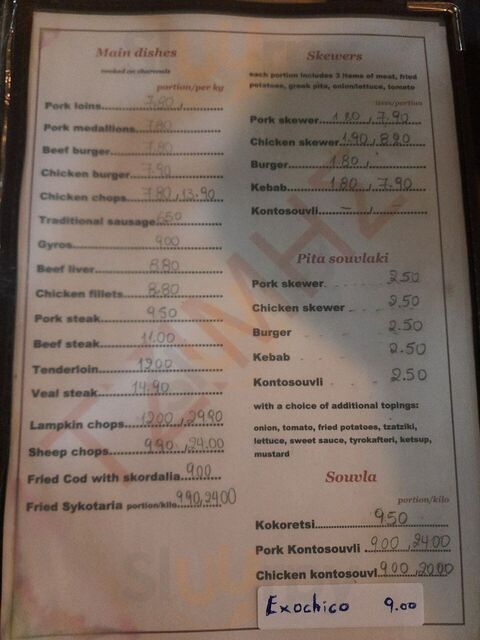 Main dishes
cooked on charcoals
portion/per kg
Pork loins......7.80,
Pork medallions...7.80
Beef burger......7.80
Chicken burger......7.90
Chicken chops...7.80, 13.90
Traditional sausage...6.50
Gyros......9.00
Beef liver......8.80
Chicken fillets......8.80
Pork steak......9.50
Beef steak......11.00
Tenderloin......19.00
Veal steak......14.90
Lampkin chops...12.00, 29.90
Sheep chops......9.90, 24.00
Fried Cod with skordalia...9.00
Fried Sykotaria portion/kilo...9.90, 24.00
Skewers
each portion includes 3 items of meat, fried
potatoes, greek pita, onion/lettuce, tomato
item/portion
Pork skewer...1.80, 7.90
Chicken skewer...1.90, 8.20
Burger......1.80,
Kebab......1.80, 7.90
Kontosouvli......–,
Pita souvlaki
Pork skewer. - - - - 2.50
Chicken skewer - - - - 2.50
Burger - - - - 2.50
Kebab - - - - 2.50
Kontosouvli - - - - 2.50
with a choice of additional topings:
onion, tomato, fried potatoes, tzatziki,
lettuce, sweet sauce, tyrokafteri, ketsup,
mustard
Souvla
portion/kilo
Kokoretsi......9.50
Pork Kontosouvli...9.00, 24.00
Chicken kontosouvl...9.00, 20.00
Exochico 9.00